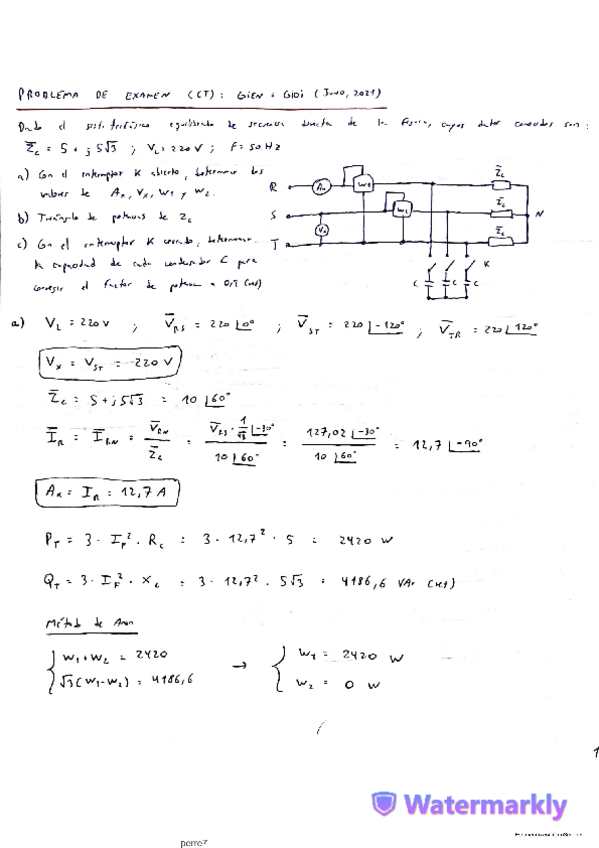 PROBLEMA DE EXAMEN (CT): GIEN + GIDI (JUNIO, 2021)
Dado el sist. trifásico equilibrado de secuencia directa de la figura, cuyos datos conocidos son:
Z̅c = 5 + j 5√3 ; VL = 220 V ; F = 50 Hz
a) Con el interruptor K abierto, determinar los
valores de Ax, Vx, W1 y W2.
b) Triángulo de potencias de Zc
c) Con el interruptor K cerrado, determinar
la capacidad de cada condensador C para
corregir el factor de potencia a
R
Ax
W1
Z̅c
S
W2
Z̅c
N
Vx
T
Z̅c
K
C C C
a) VL = 220 V ; V̅RS = 220 |0° ; V̅ST = 220 |-120° ; V̅TR = 220 |120°
Vx = VST = 220 V
Z̅c = 5 + j 5√3 = 10 |60°
I̅R = I̅RN = V̅RN / Z̅c = V̅RS · 1/√3 |-30° / 10 |60° = 127,02 |-30° / 10 |60° = 12,7 |-90°
Ax = IR = 12,7 A
PT = 3 · IF² · Rc = 3 · 12,7² · 5 = 2420 W
QT = 3 · IF² · Xc = 3 · 12,7² · 5√3 = 4186,6 VAr
Método de Aron
W1 + W2 = 2420 → W1 = 2420 W
√3 (W1 - W2) = 4186,6 W2 = 0 W
1
Watermarkly
perre7